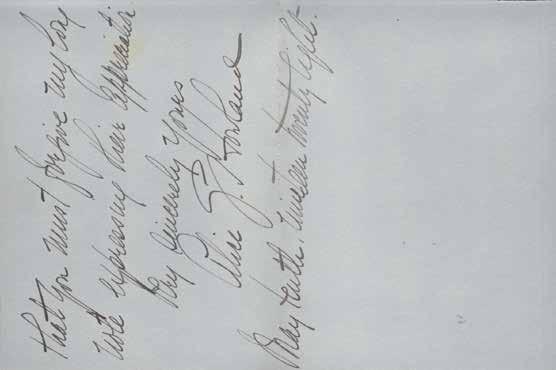 that you must forgive my long
note expressing their appreciation.
Very Sincerely Yours
Alice G. Howland
May tenth, nineteen twenty eight.